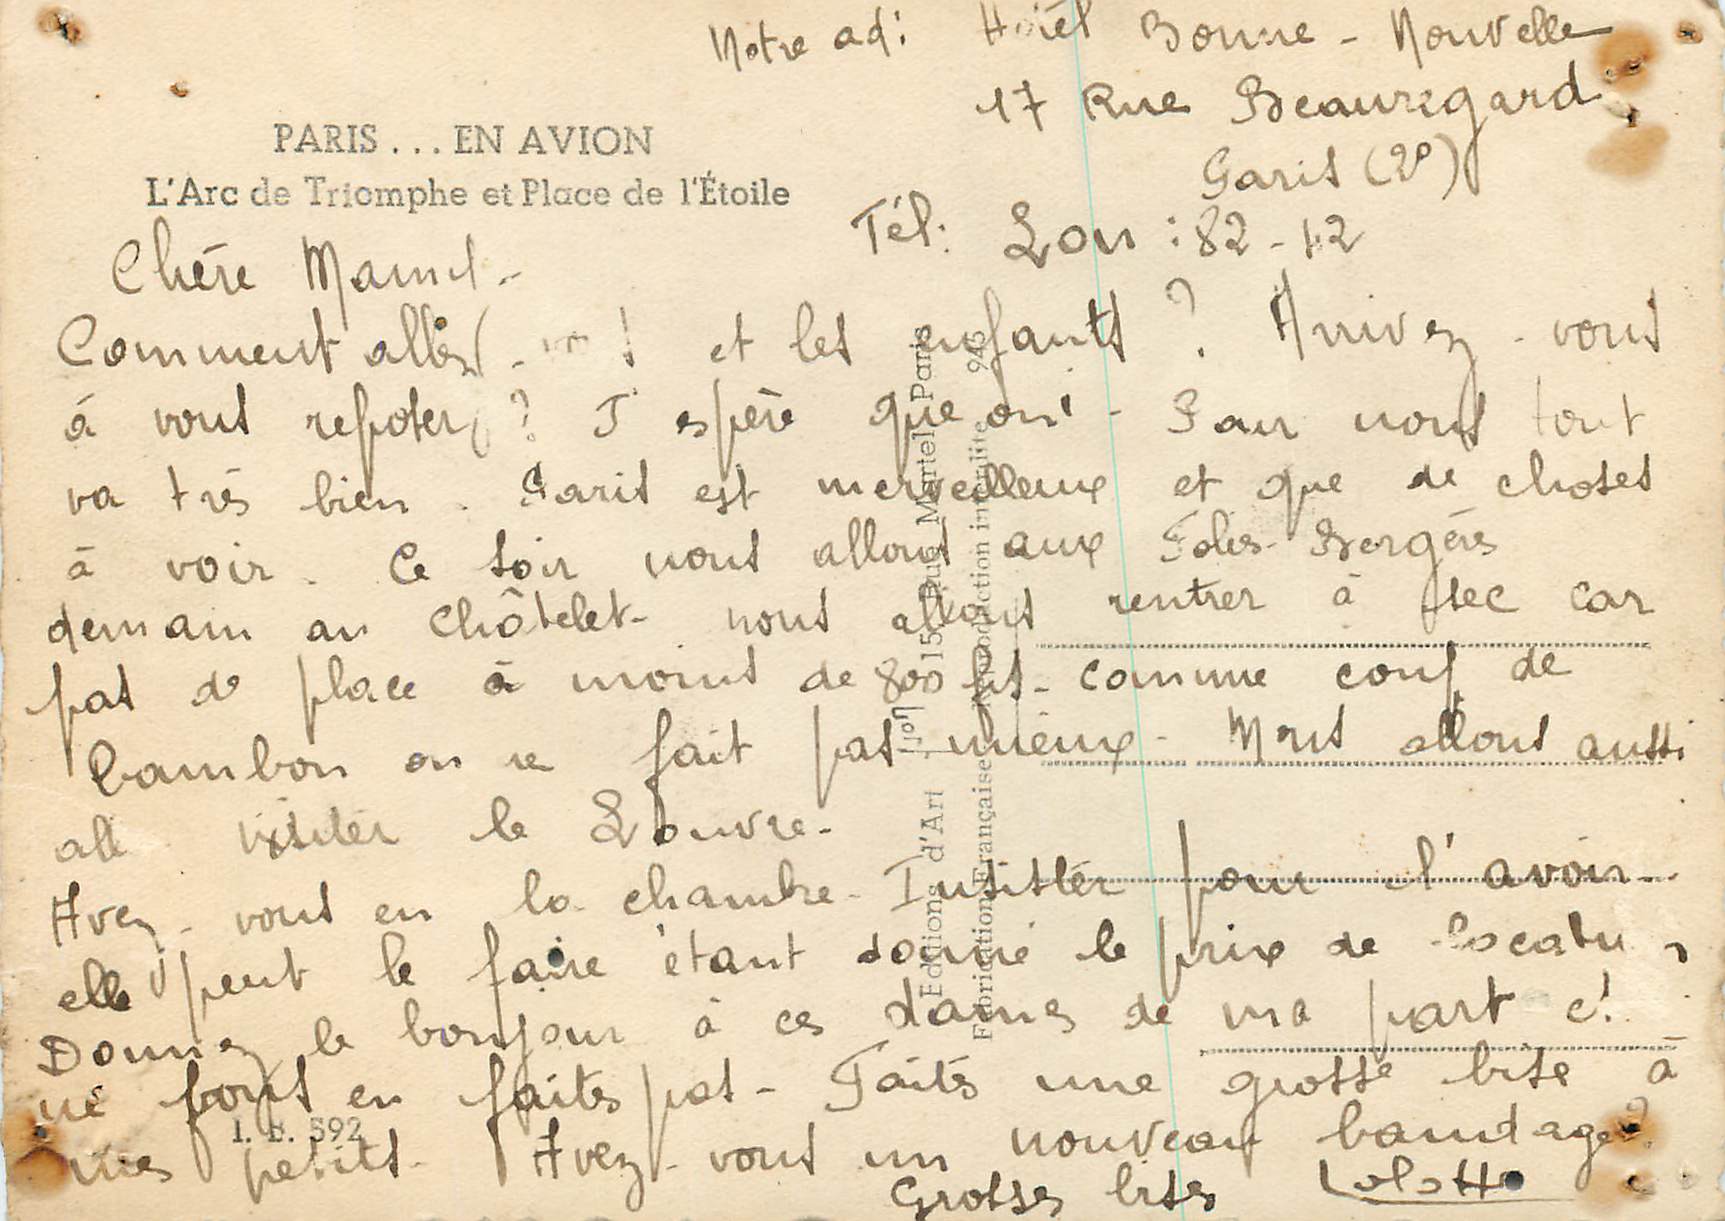 Notre ad: Hôtel Bonne-Nouvelle
17 Rue Beauregard
Paris (2°)
Tél: Lou: 82-42
PARIS...EN AVION
L'Arc de Triomphe et Place de l'Étoile
Chère
Comment allez- et les enfants? Arrivez-vous
à vous reposer? J espère que oui - Pour nous tout
va très bien. Paris est merveilleux et que de choses
à voir. Ce soir nous allons aux Folies-Bergères
demain au Châtelet- nous allons rentrer à sec car
pas de place à moins de 800 frs- comme coup de
bambon on ne fait pas mieux- Nous allons aussi
all visiter le Louvre-
Avez-vous eu la chambre- Insister pour l'avoir-
elle peut le faire étant donné le prix de
Donnez le bonjour à ces dames de ma part
ne vous en faites pas- Faites une grosse bise à
mes petits- Avez-vous un nouveau bandage?
Grosses bises Lolotte
Editions d'Art 15, Rue Martel Paris
Fabrication Française Reproduction interdite 945
I. B. 592